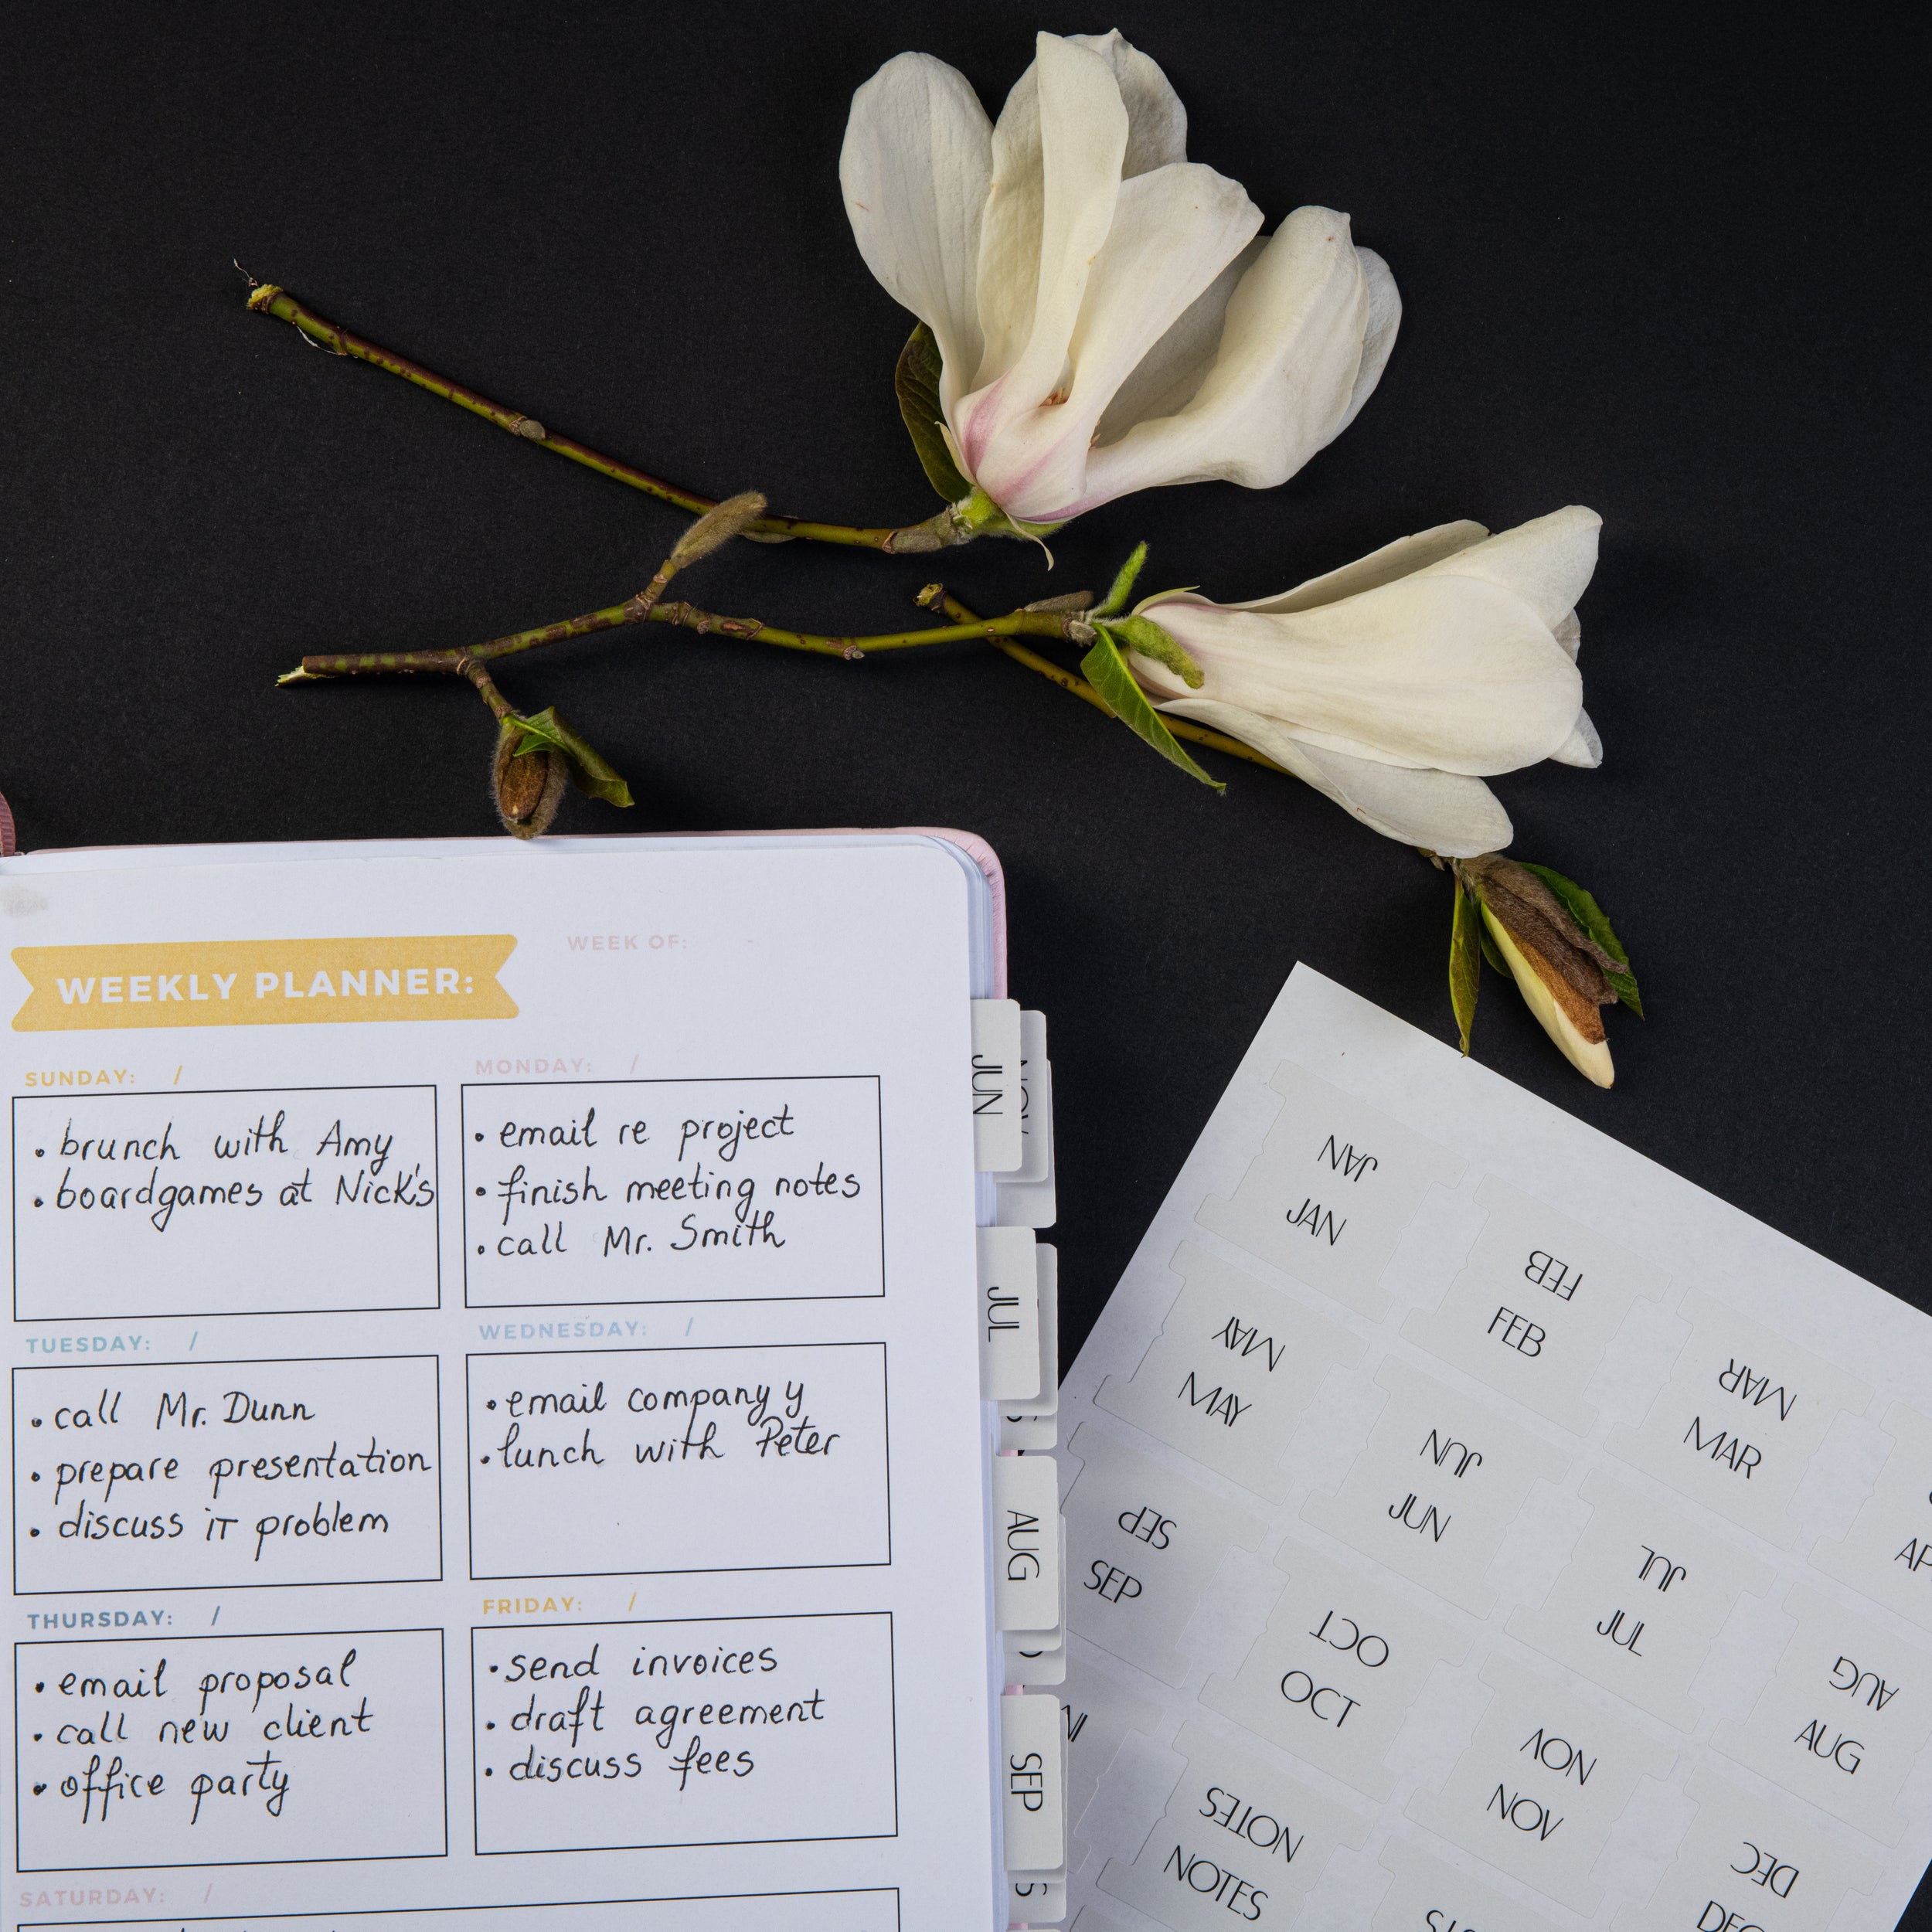 WEEKLY PLANNER:
WEEK OF:
SUNDAY: /
• brunch with Amy
• boardgames at Nick's
MONDAY: /
• email re project
• finish meeting notes
• call Mr. Smith
TUESDAY: /
• call Mr. Dunn
• prepare presentation
• discuss IT problem
WEDNESDAY: /
• email company y
• lunch with Peter
THURSDAY: /
• email proposal
• call new client
• office party
FRIDAY: /
• send invoices
• draft agreement
• discuss fees
SATURDAY: /
JUN
NOV
JUL
AUG
SEP
JAN
JAN
FEB
FEB
MAR
MAR
MAY
MAY
JUN
JUN
JUL
JUL
AUG
AUG
SEP
SEP
OCT
OCT
NOV
NOV
DEC
DEC
NOTES
NOTES